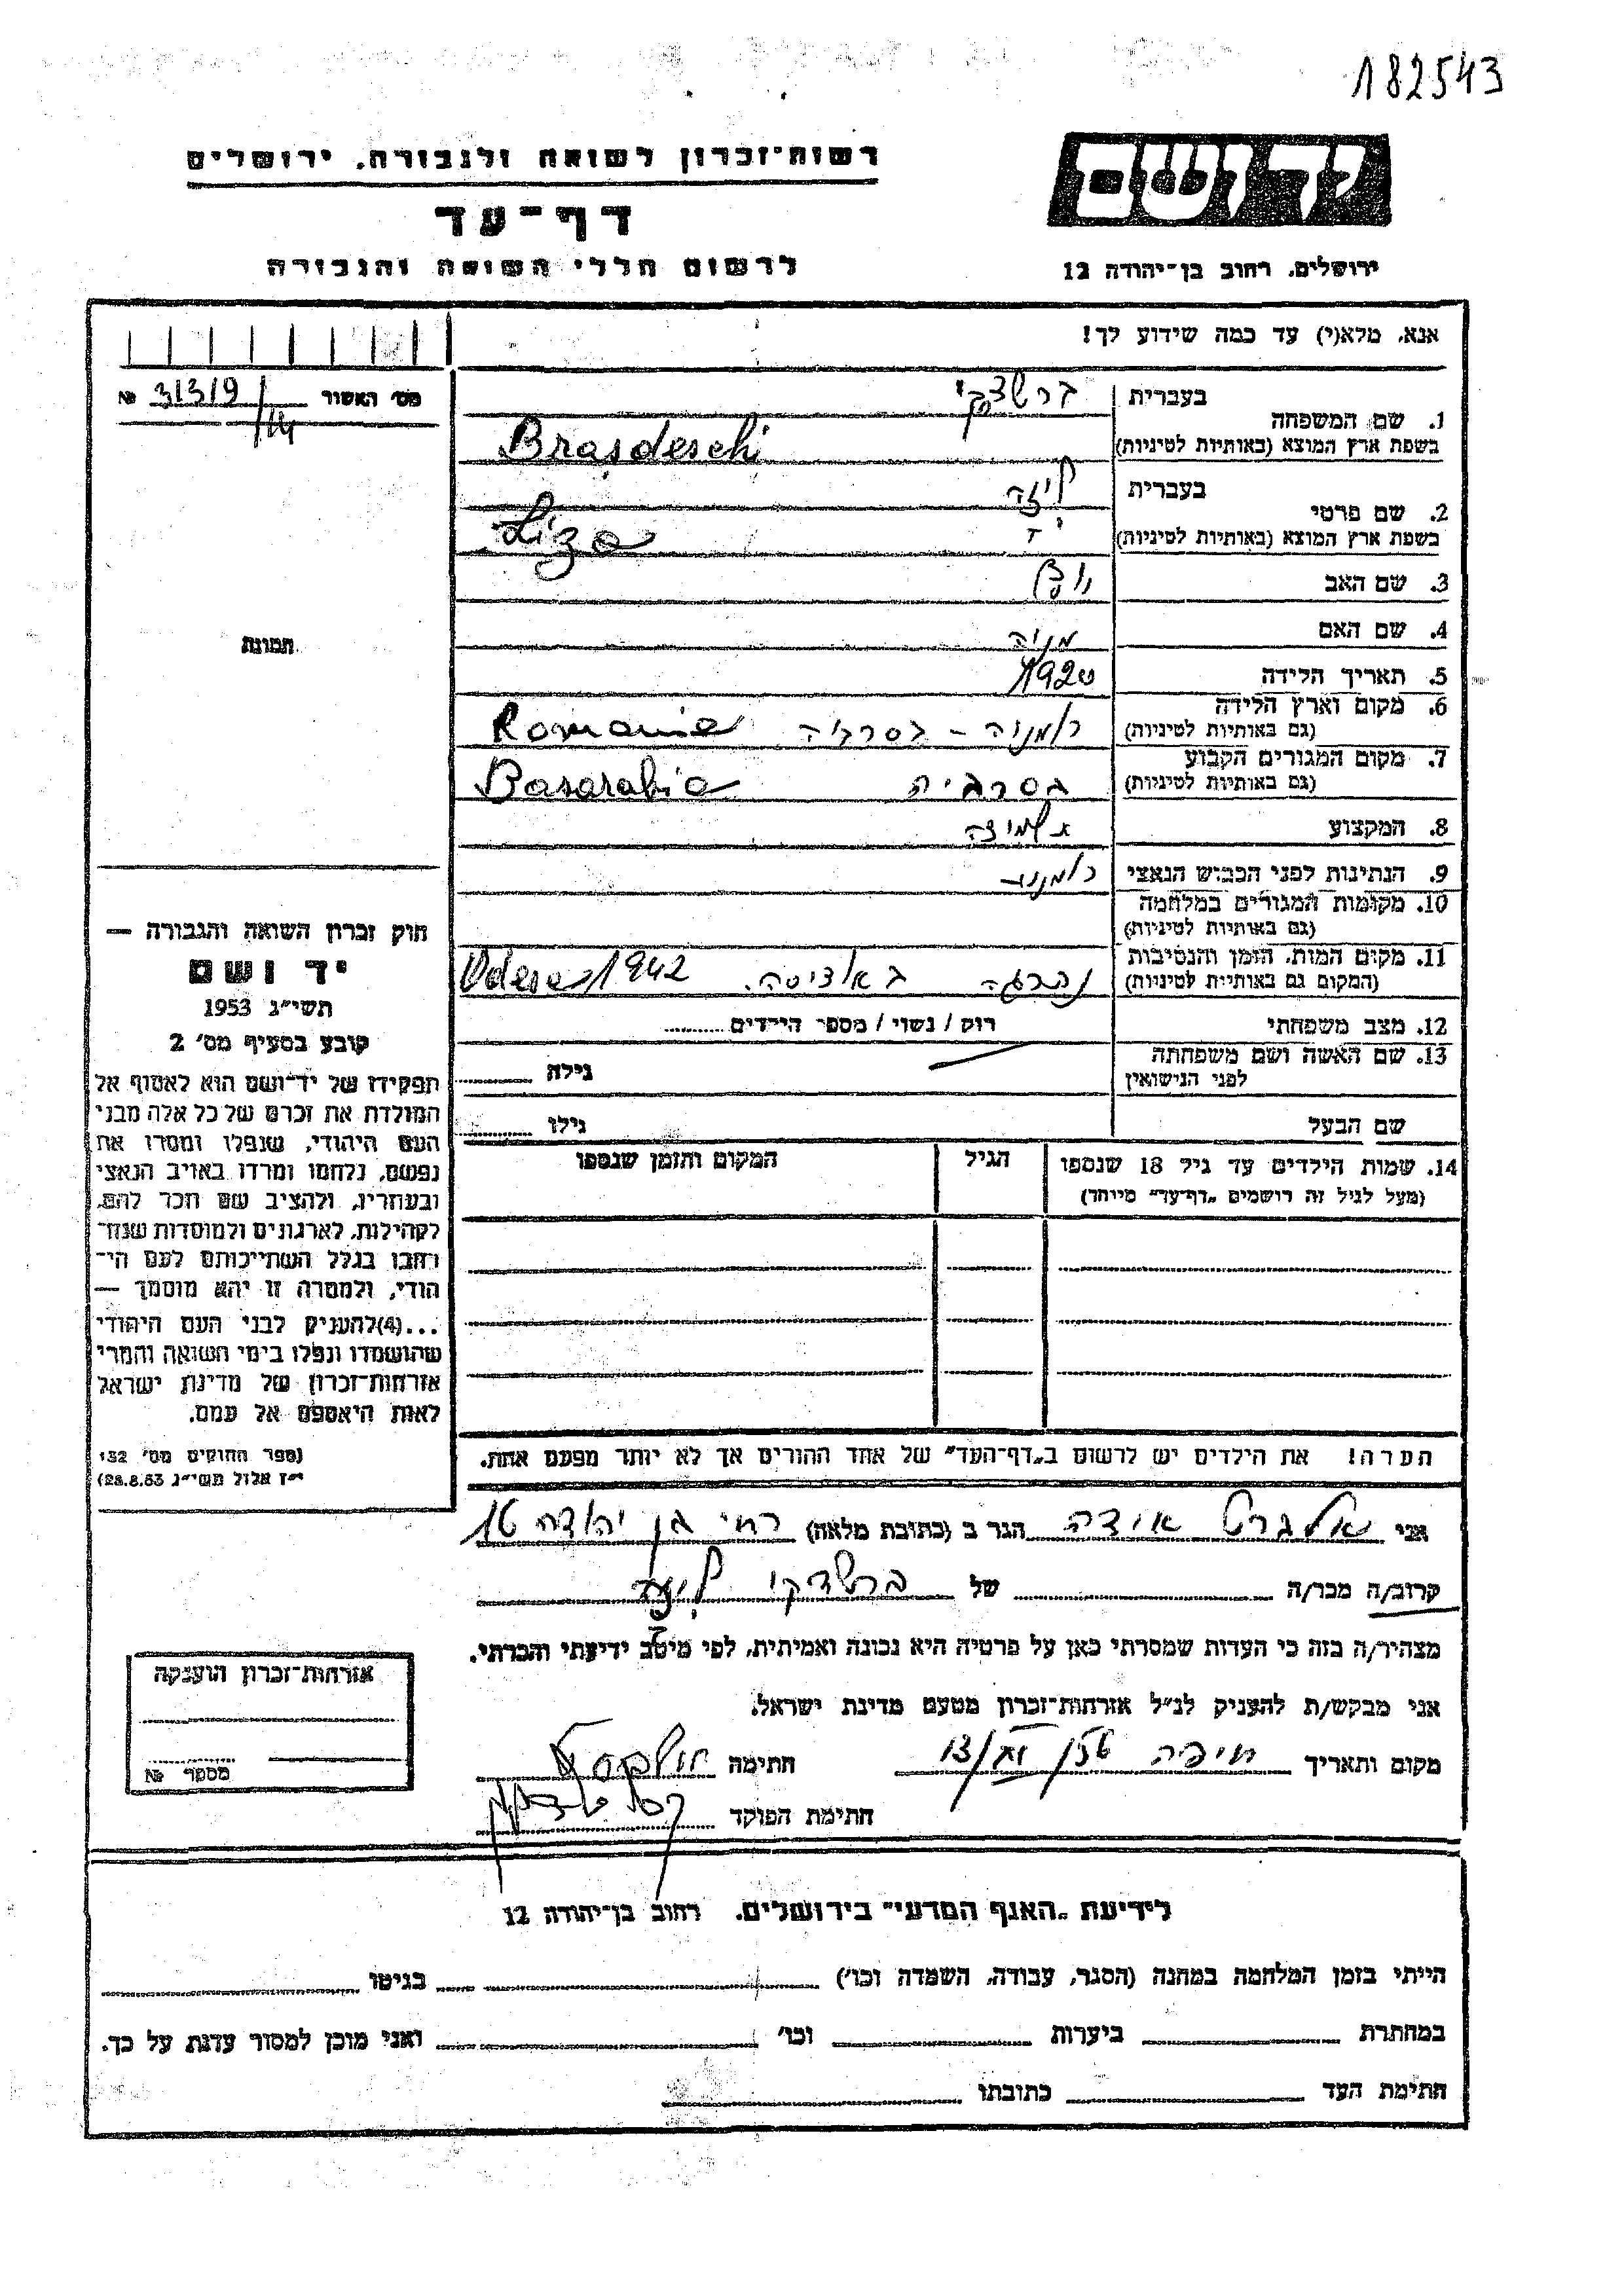 182543
יד ושם
רשות־זכרון לשואה ולגבורה, ירושלים
דף־עד
לרשום חללי השואה והגבורה
ירושלים, רחוב בן־יהודה 12
אנא, מלא(י) עד כמה שידוע לך!
מס' האשור 31319/14 №
1. שם המשפחה
בעברית
בשפת ארץ המוצא (באותיות לטיניות) Brasdeschi
2. שם פרטי
בעברית ליזה
בשפת ארץ המוצא (באותיות לטיניות) Liza
3. שם האב
4. שם האם מניה
5. תאריך הלידה 1920
6. מקום וארץ הלידה
(גם באותיות לטיניות) רומניה - בסרביה Romania
7. מקום המגורים הקבוע
(גם באותיות לטיניות) בסרביה Basarabia
8. המקצוע
9. הנתינות לפני הכבוש הנאצי
10. מקומות המגורים במלחמה
(גם באותיות לטיניות)
11. מקום המות, הזמן והנסיבות
(המקום גם באותיות לטיניות) נהרגה באודיסה. Odesa 1942
12. מצב משפחתי רוק / נשוי / מספר הילדים
13. שם האשה ושם משפחתה
לפני הנישואין גילה
שם הבעל גילו
14. שמות הילדים עד גיל 18 שנספו
(מעל לגיל זה רושמים „דף־עד" מיוחד)
הגיל
המקום והזמן שנספו
תמונה
חוק זכרון השואה והגבורה —
יד ושם
תשי"ג 1953
קובע בסעיף מס' 2
תפקידו של יד־ושם הוא לאסוף אל
המולדת את זכרם של כל אלה מבני
העם היהודי, שנפלו ומסרו את
נפשם, נלחמו ומרדו באויב הנאצי
ובעוזריו, ולהציב שם וזכר להם,
לקהילות, לארגונים ולמוסדות שנח־
רבו בגלל השתייכותם לעם הי־
הודי, ולמטרה זו יהא מוסמך —
...(4)להעניק לבני העם היהודי
שהושמדו ונפלו בימי השואה והמרי
אזרחות־זכרון של מדינת ישראל
לאות היאספם אל עמם.
(ספר החוקים מס' 132
י"ז אלול תשי"ג 28.8.53)
הערה! את הילדים יש לרשום ב„דף־העד" של אחד ההורים אך לא יותר מפעם אחת.
אני אלגרט אידה הגר ב (כתובת מלאה) רחי בן יהודה 16
קרוב/ה מכר/ה של ברשדקי ליזה
מצהיר/ה בזה כי העדות שמסרתי כאן על פרטיה היא נכונה ואמיתית, לפי מיטב ידיעתי והכרתי.
אני מבקש/ת להעניק לנ"ל אזרחות־זכרון מטעם מדינת ישראל.
מקום ותאריך חיפה חתימה
חתימת הפוקד
אזרחות־זכרון הוענקה
מספר №
לידיעת „האגף המדעי" בירושלים, רחוב בן־יהודה 12
הייתי בזמן המלחמה במחנה (הסגר, עבודה, השמדה וכו') בגיטו
במחתרת ביערות וכו' ואני מוכן למסור עדות על כך.
חתימת העד כתובתו